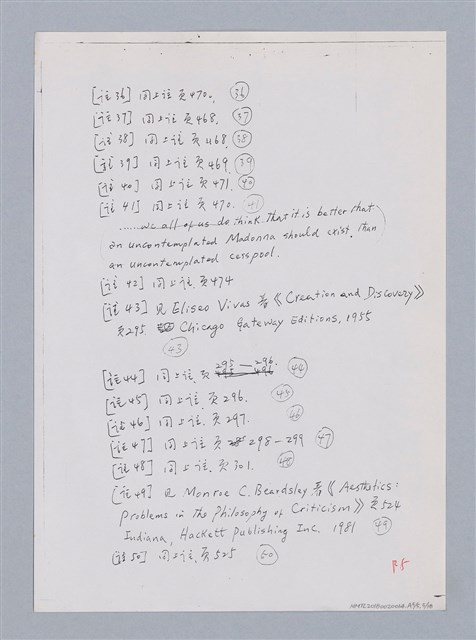 [註36] 同上註頁470. 36
[註37] 同上註頁468. 37
[註38] 同上註頁468. 38
[註39] 同上註頁469. 39
[註40] 同上註頁471. 40
[註41] 同上註頁470. 41
......we all of us do think that it is better that
an uncontemplated Madonna should exist than
an uncontemplated cesspool.
[註42] 同上註頁474
[註43] 見 Eliseo Vivas 著《Creation and Discovery》
頁295 Chicago Gateway Editions, 1955
43
[註44] 同上註.頁 295—296. 44
[註45] 同上註.頁296. 45
[註46] 同上註.頁297. 46
[註47] 同上註.頁 298-299 47
[註48] 同上註.頁301. 48
[註49] 見 Monroe C. Beardsley 著《Aesthetics:
Problems in the Philosophy of Criticism》頁524
Indiana, Hackett Publishing Inc. 1981 49
[註50] 同上註.頁525 50
P.5